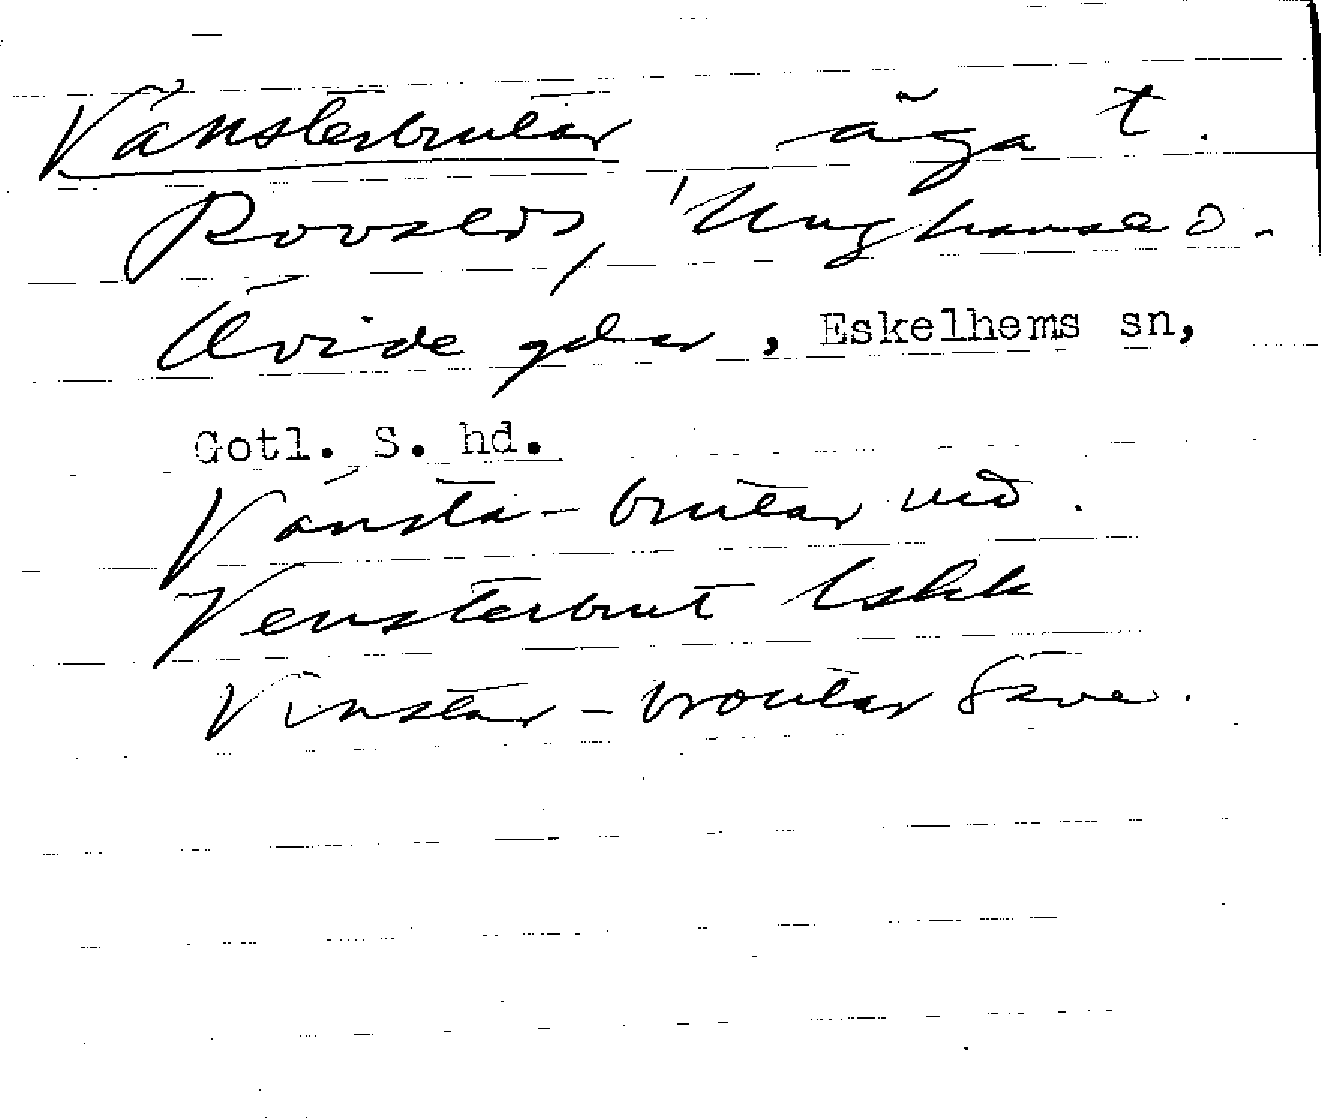 Vänsterbrutar äga t.
Rovsers, Unghanse o.
Ävide gdar, Eskelhems sn,
Gotl. S. hd.
Vänsta-brutar und.
Vensterbrut Lskk
Vinstar-broutar Säve.